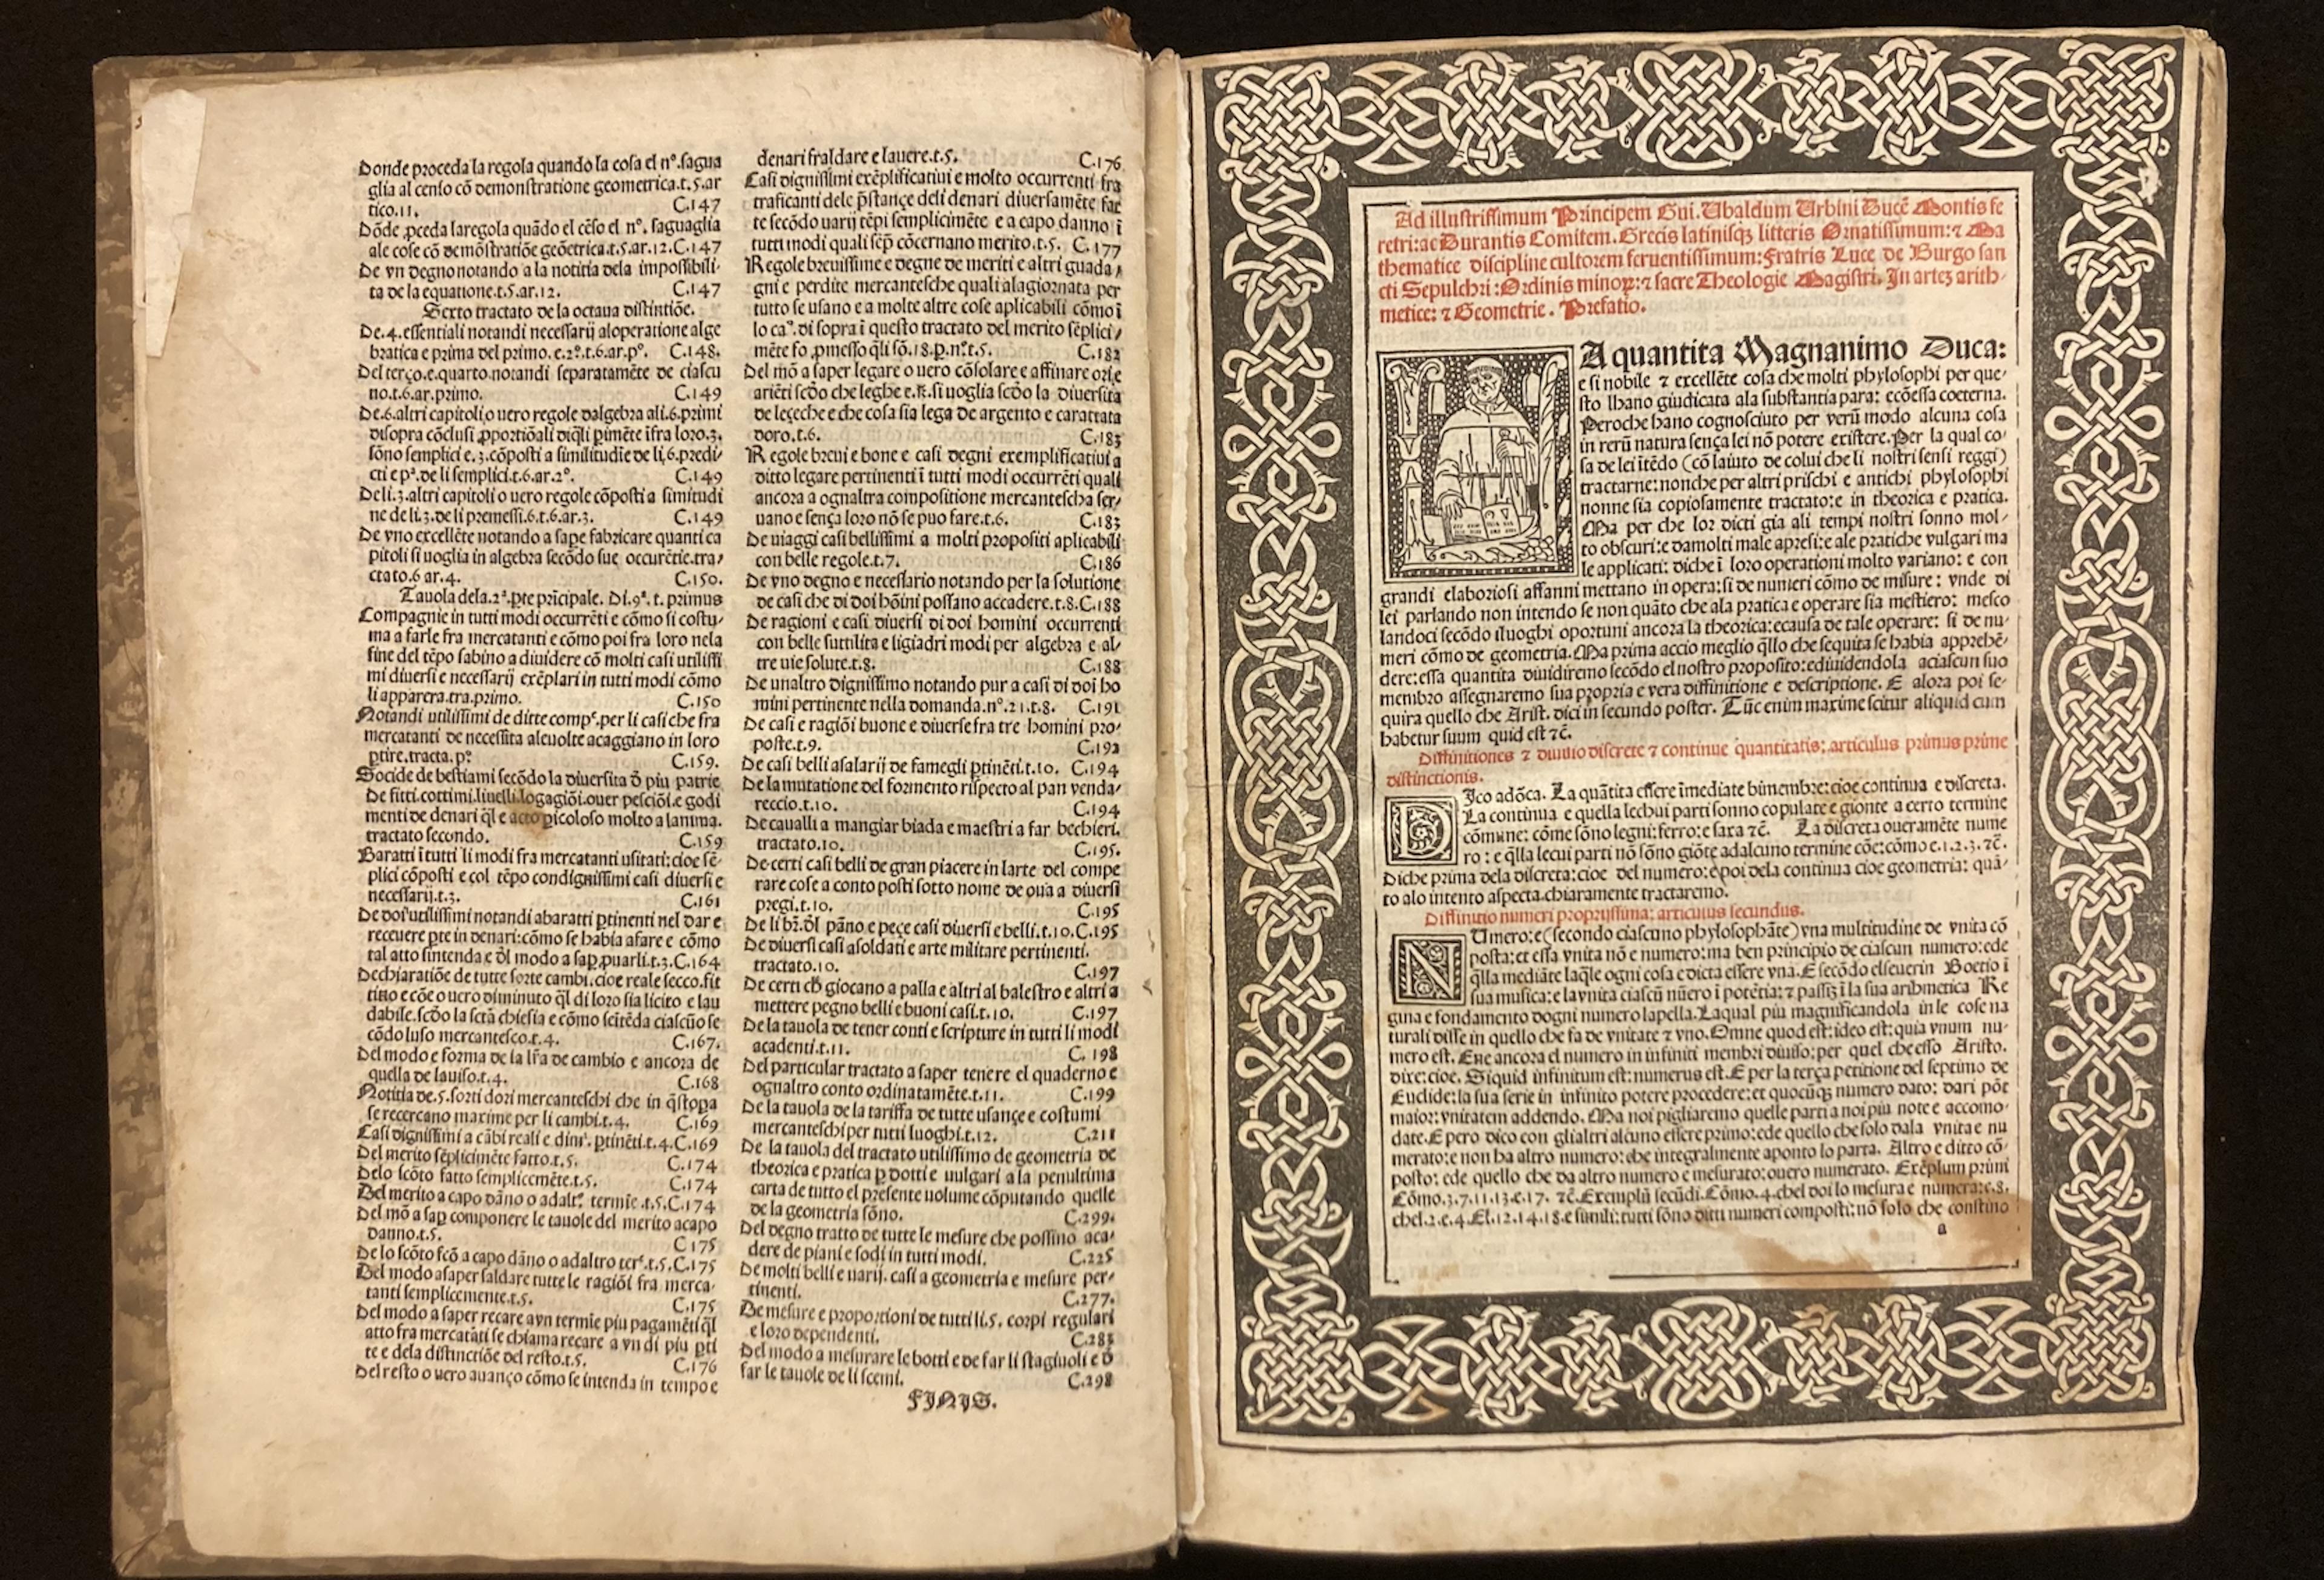 Donde proceda la regola quando la cosa el nº.sagua
glia al censo cõ demonstratione geometrica.t.5.ar
tico.11. C.147
Dõde ꝓceda laregola quãdo el cẽso el nº. saguaglia
ale cose cõ demõstratiõe geõetrica.t.5.ar.12.C.147
De vn degno notando a la notitia dela impossibili-
ta de la equatione.t.5.ar.12. C.147
Sexto tractato de la octaua distintiõe.
De.4.essentiali notandi necessarij aloperatione alge
bratica e prima del primo.e.2º.t.6.ar.pº. C.148.
Del terço.e.quarto.notandi separatamẽte de ciascu
no.t.6.ar.primo. C.149
De.6.altri capitoli o uero regole dalgebra ali.6.primi
disopra cõclusi ꝓportiõali diq̃li ꝑimẽte ĩfra loro.3.
sõno semplici e.3.cõposti a similitudĩe de li.6.predi-
cti e pª.de li semplici.t.6.ar.2º. C.149
De li.3.altri capitoli o uero regole cõposti a simitudi
ne de li.3.de li premessi.6.t.6.ar.3. C.149
De vno excellẽte notando a sape fabricare quanti ca
pitoli si uoglia in algebra secõdo sue occurẽtie.tra-
ctato.6 ar.4. C.150.
Tauola dela.2ª.ꝑte prĩcipale. Di.9ª. t. primus
Compagnie in tutti modi occurrẽti e cõmo si costu-
ma a farle fra mercatanti e cõmo poi fra loro nela
fine del tẽpo sabino a diuidere cõ molti casi utilissi
mi diuersi e necessarij exẽplari in tutti modi cõmo
li apparera.tra.primo. C.150
Notandi utilissimi de ditte compᵉ.per li casi che fra
mercatanti de necessita aleuolte acaggiano in loro
ꝑtire.tracta.pº C.159.
Socide de bestiami secõdo la diuersita õ piu patrie
De fitti.cottimi.liuelli.logagiõi.ouer pesciõi.e godi
menti de denari q̃l e acto ꝑicoloso molto a lanima.
tractato secondo. C.159
Baratti ĩ tutti li modi fra mercatanti usitati: cioe sẽ-
plici cõposti e col tẽpo condignissimi casi diuersi e
necessarij.t.3. C.161
De doi utilissimi notandi abaratti ꝑtinenti nel dar e
receuere ꝑte in denari: cõmo se habia afare e cõmo
tal atto sintenda e ð̃l modo a saꝑ ꝓuarli.t.3.C.164
Dechiaratiõe de tutte sorte cambi.cioe reale secco.fit
titio e cõe o uero diminuto q̃l di loro sia licito e lau
dabile.scðo la sctã chiesia e cõmo seĩtẽda ciascũo se
cõdo luso mercantesco.t.4. C.167.
Del modo e forma de la lr̃a de cambio e ancora de
quella de lauiso.t.4. C.168
Notitia de.5.sorti dori mercanteschi che in q̃stoꝑa
se recercano maxime per li cambi.t.4. C.169
Casi dignissimi a cãbi reali e dinᵗ. ꝑtinẽti.t.4.C.169
Del merito sẽplicimẽte fatto.t.5. C.174
Delo scõto fatto semplicemẽte.t.5. C.174
Del merito a capo dãno o adaltᵒ. termĩe .t.5.C.174
Del mõ a saꝑ componere le tauole del merito acapo
danno.t.5. C 175
De lo scõto fcõ a capo dãno o adaltro terᵉ.t.5.C.175
Del modo asaper saldare tutte le ragiõi fra merca-
tanti semplicemente.t.5. C.175
Del modo a saper recare avn termĩe piu pagamẽti q̃l
atto fra mercatãti se chiama recare a vn di piu ꝑti
te e dela distinctiõe del resto.t.5. C.176
Del resto o uero auanço cõmo se intenda in tempo e
denari fraldare e lauere.t.5. C.176
Casi dignissimi exẽplificatiui e molto occurrenti fra
traficanti dele p̃stançe deli denari diuersamẽte far
te secõdo uarij tẽpi semplicimẽte e a capo danno ĩ
tutti modi quali sẽꝑ cõcernano merito.t.5. C.177
Regole breuissime e degne de meriti e altri guada-
gni e perdite mercantesche quali alagiornata per
tutto se usano e a molte altre cose aplicabili cõmo ĩ
lo caº.di sopra ĩ questo tractato del merito sẽplici-
mẽte fo ꝓmesso q̃li sõ.18.ꝑ.nº.t.5. C.182
Del mõ a saper legare o uero cõsolare e affinare ori e
ariẽti scðo che leghe e.ꝶ.si uoglia scðo la diuersita
de leçeche e che cosa sia lega de argento e carattata
doro.t.6. C.183
Regole breui e bone e casi degni exemplificatiui a
ditto legare pertinenti ĩ tutti modi occurrẽti quali
ancora a ognaltra compositione mercantescha ser-
uano e sença loro nõ se puo fare.t.6. C.183
De uiaggi casi bellissimi a molti propositi aplicabili
con belle regole.t.7. C.186
De vno degno e necessario notando per la solutione
de casi che di doi hõini possano accadere.t.8.C.188
De ragioni e casi diuersi di doi homini occurrenti
con belle suttilita e ligiadri modi per algebra e al-
tre uie solute.t.8. C.188
De unaltro dignissimo notando pur a casi di doi ho
mini pertinente nella domanda.nº.21.t.8. C.191
De casi e ragiõi buone e diuerse fra tre homini pro-
poste.t.9. C.192
De casi belli asalarij de famegli ꝑtinẽti.t.10. C.194
De la mutatione del formento rispecto al pan venda-
reccio.t.10. C.194
De caualli a mangiar biada e maestri a far bechieri.
tractato.10. C.195.
De certi casi belli de gran piacere in larte del compe
rare cose a conto posti sotto nome de oua a diuersi
pregi.t.10. C.195
De li br̃.ð̃l pãno e peçe casi diuersi e belli.t.10.C.195
De diuersi casi asoldati e arte militare pertinenti.
tractato.10. C.197
De certi ch̃ giocano a palla e altri al balestro e altri a
mettere pegno belli e buoni casi.t.10. C.197
De la tauola de tener conti e scripture in tutti li modi
acadenti.t.11. C. 198
Del particular tractato a saper tenere el quaderno e
ognaltro conto ordinatamẽte.t.11. C.199
De la tauola de la tariffa de tutte usançe e costumi
mercanteschi per tutti luoghi.t.12. C.211
De la tauola del tractato utilissimo de geometria de
theorica e pratica ꝑ dotti e uulgari a la penultima
carta de tutto el presente uolume cõputando quelle
de la geometria sõno. C.299.
Del degno tratto de tutte le mesure che possino aca-
dere de piani e sodi in tutti modi. C.225
De molti belli e uarij. casi a geometria e mesure per-
tinenti. C.277.
De mesure e proportioni de tutti li.5. corpi regulari
e loro dependenti. C.283
Del modo a mesurare le botti e de far li stagiuoli e õ
far le tauole de li scemi. C.298
FINIS.
Ad illustrissimum Principem Gui. Ubaldum Urbini Ducẽ Montis fe
retri: ac Durantis Comitem. Grecis latinisqꝫ litteris Ornatissimum: ⁊ Ma
thematice discipline cultorem feruentissimum: Fratris Luce de Burgo san
cti Sepulchri: Ordinis minoꝝ: ⁊ sacre Theologie Magistri. In artеꝫ arith-
metice: ⁊ Geometrie. Prefatio.
A quantita Magnanimo Duca:
e si nobile ⁊ excellẽte cosa che molti phylosophi per que-
sto lhano giudicata ala substantia para: ecõessa coeterna.
Peroche hano cognosciuto per verũ modo alcuna cosa
in rerũ natura sença lei nõ potere existere. Per la qual co-
sa de lei ĩtẽdo (cõ laiuto de colui che li nostri sensi reggi)
tractarne: nonche per altri prischi e antichi phylosophi
nonne sia copiosamente tractato: e in theorica e pratica.
Ma per che lor dicti gia ali tempi nostri sonno mol-
to obscuri: e damolti male apresi: e ale pratiche vulgari ma
le applicati: diche ĩ loro operationi molto variano: e con
grandi elaboriosi affanni mettano in opera: si de numeri cõmo de misure: vnde di
lei parlando non intendo se non quãto che ala pratica e operare sia mestiero: mesco
landoci secõdo iluoghi oportuni ancora la theorica: ecausa de tale operare: si de nu-
meri cõmo de geometria. Ma prima accio meglio q̃llo che sequita se habia apprehẽ-
dere: essa quantita diuidiremo secõdo el nostro proposito: ediuidendola aciascun suo
membro assegnaremo sua propria e vera diffinitione e descriptione. E alora poi se-
quira quello che Arist. dici in secundo poster. Tũc enim maxime scitur aliquid cum
habetur suum quid est ⁊c̃.
Diffinitiones ⁊ diuisio discrete ⁊ continue quantitatis: articulus primus prime
distinctionis.
DIco adõca. La quãtita essere ĩmediate bimembre: cioe continua e discreta.
La continua e quella lechui parti sonno copulate e gionte a certo termine
cõmune: cõme sõno legni: ferro: e saxa ⁊c̃. La discreta oueramẽte nume
ro: e q̃lla lecui parti nõ sõno giõte adalcuno termine cõe: cõmo e.1.2.3. ⁊c̃.
Diche prima dela discreta: cioe del numero: e poi dela continua cioe geometria: quã-
to alo intento aspecta chiaramente tractaremo.
Diffinitio numeri propryssima: articulus secundus.
NUmero: e (secondo ciascuno phylosophãte) vna multitudine de vnita cõ
posta: et essa vnita nõ e numero: ma ben principio de ciascun numero: ede
q̃lla mediãte laq̃le ogni cosa e dicta essere vna. E secõdo elseuerin Boetio ĩ
sua musica: e la vnita ciascũ nũero ĩ potẽtia: ⁊ passiꝫ ĩ la sua arihmetica Re
gina e fondamento dogni numero lapella. Laqual piu magnificandola in le cose na
turali disse in quello che fa de vnitate ⁊ vno. Omne quod est: ideo est: quia vnum nu-
mero est. Ene ancora el numero in infiniti membri diuiso: per quel che esso Aristo.
dixe: cioe. Siquid infinitum est: numerus est. E per la terça petitione del septimo de
Euclide: la sua serie in infinito potere procedere: et quocũqꝫ numero dato: dari põt
maior: vnitatem addendo. Ma noi pigliaremo quelle parti a noi piu note e accomo-
date. E pero dico con glialtri alcuno essere primo: ede quello che solo dala vnita e nu
merato: e non ha altro numero: che integralmente aponto lo parta. Altro e ditto cõ-
posto: ede quello che da altro numero e mesurato: ouero numerato. Exẽplum primi
Cõmo.3.7.11.13.e.17. ⁊c̃. Exemplũ secũdi. Cõmo.4.chel doi lo mesura e numera: e.8.
chel.2.e.4.El.12.14.18.e simili: tutti sõno ditti numeri composti: nõ solo che constino
a